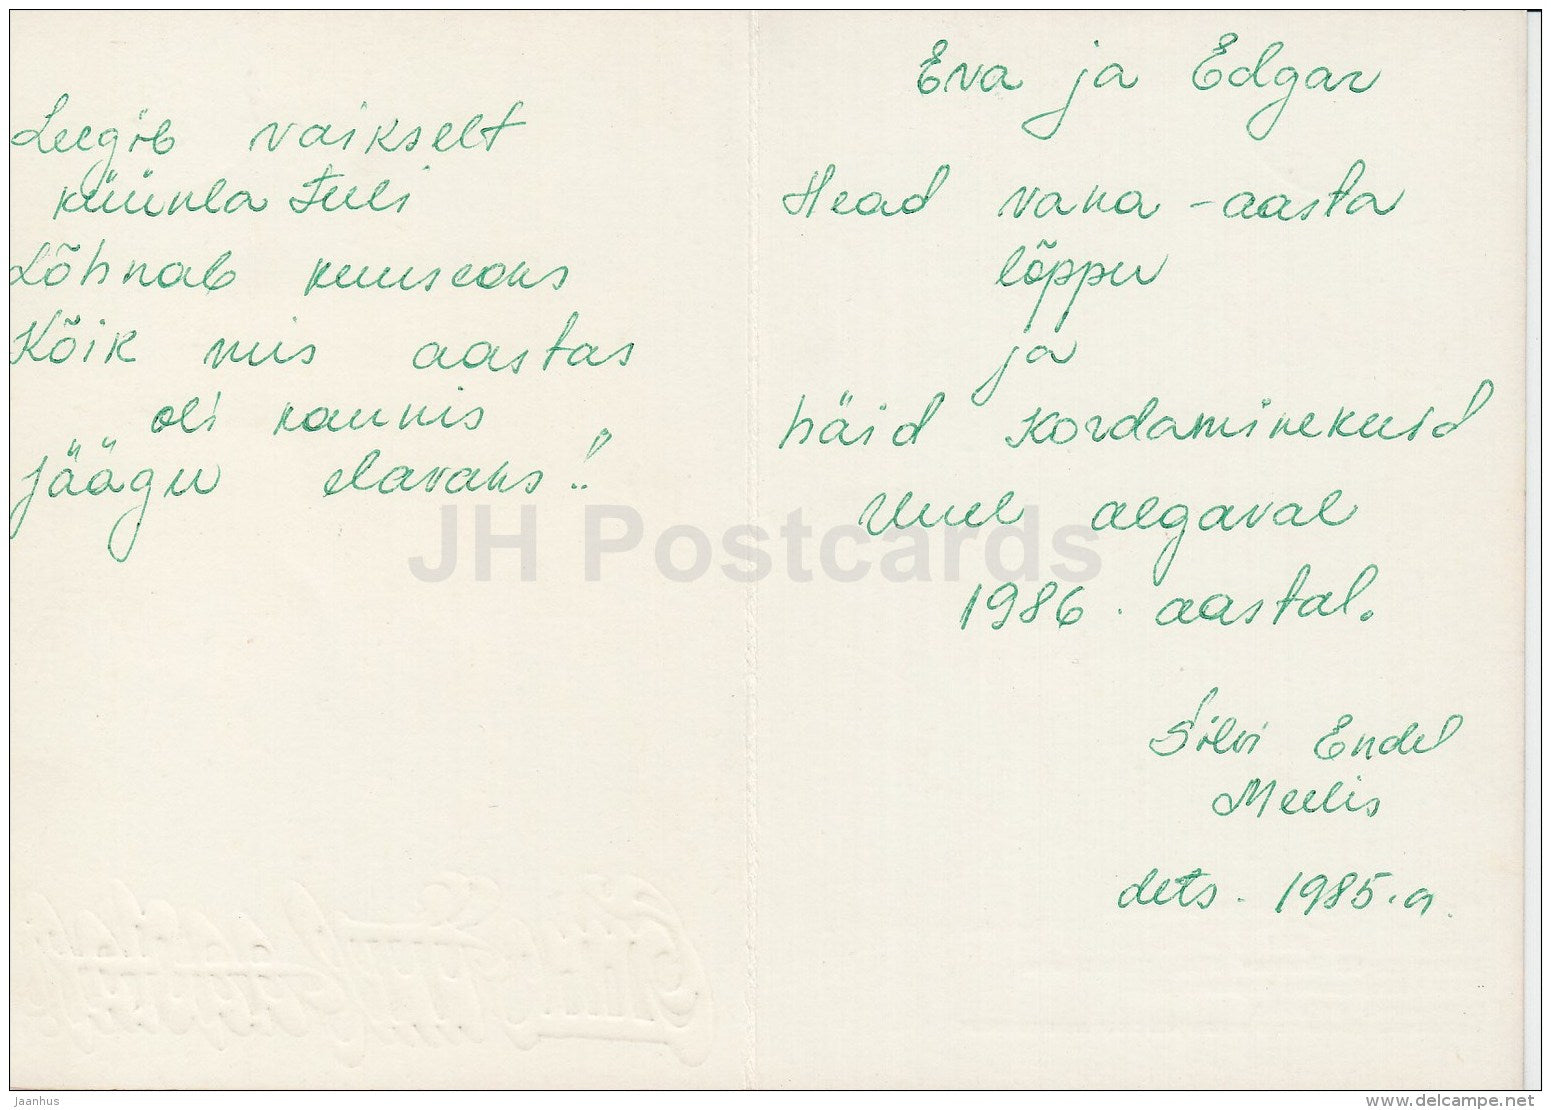 Leegib vaikselt
küünla tuli
Lõhnab kuuseoks
Kõik mis aastas
oli kaunis
jäägu elavaks!!
Eva ja Edgar
Head vana-aasta
lõppu
ja
häid kordaminekuid
Uuel algaval
1986. aastal.
Silvi Endel
Meelis
dets. 1985.a.
JH Postcards
jaanhus
www.delcampe.net